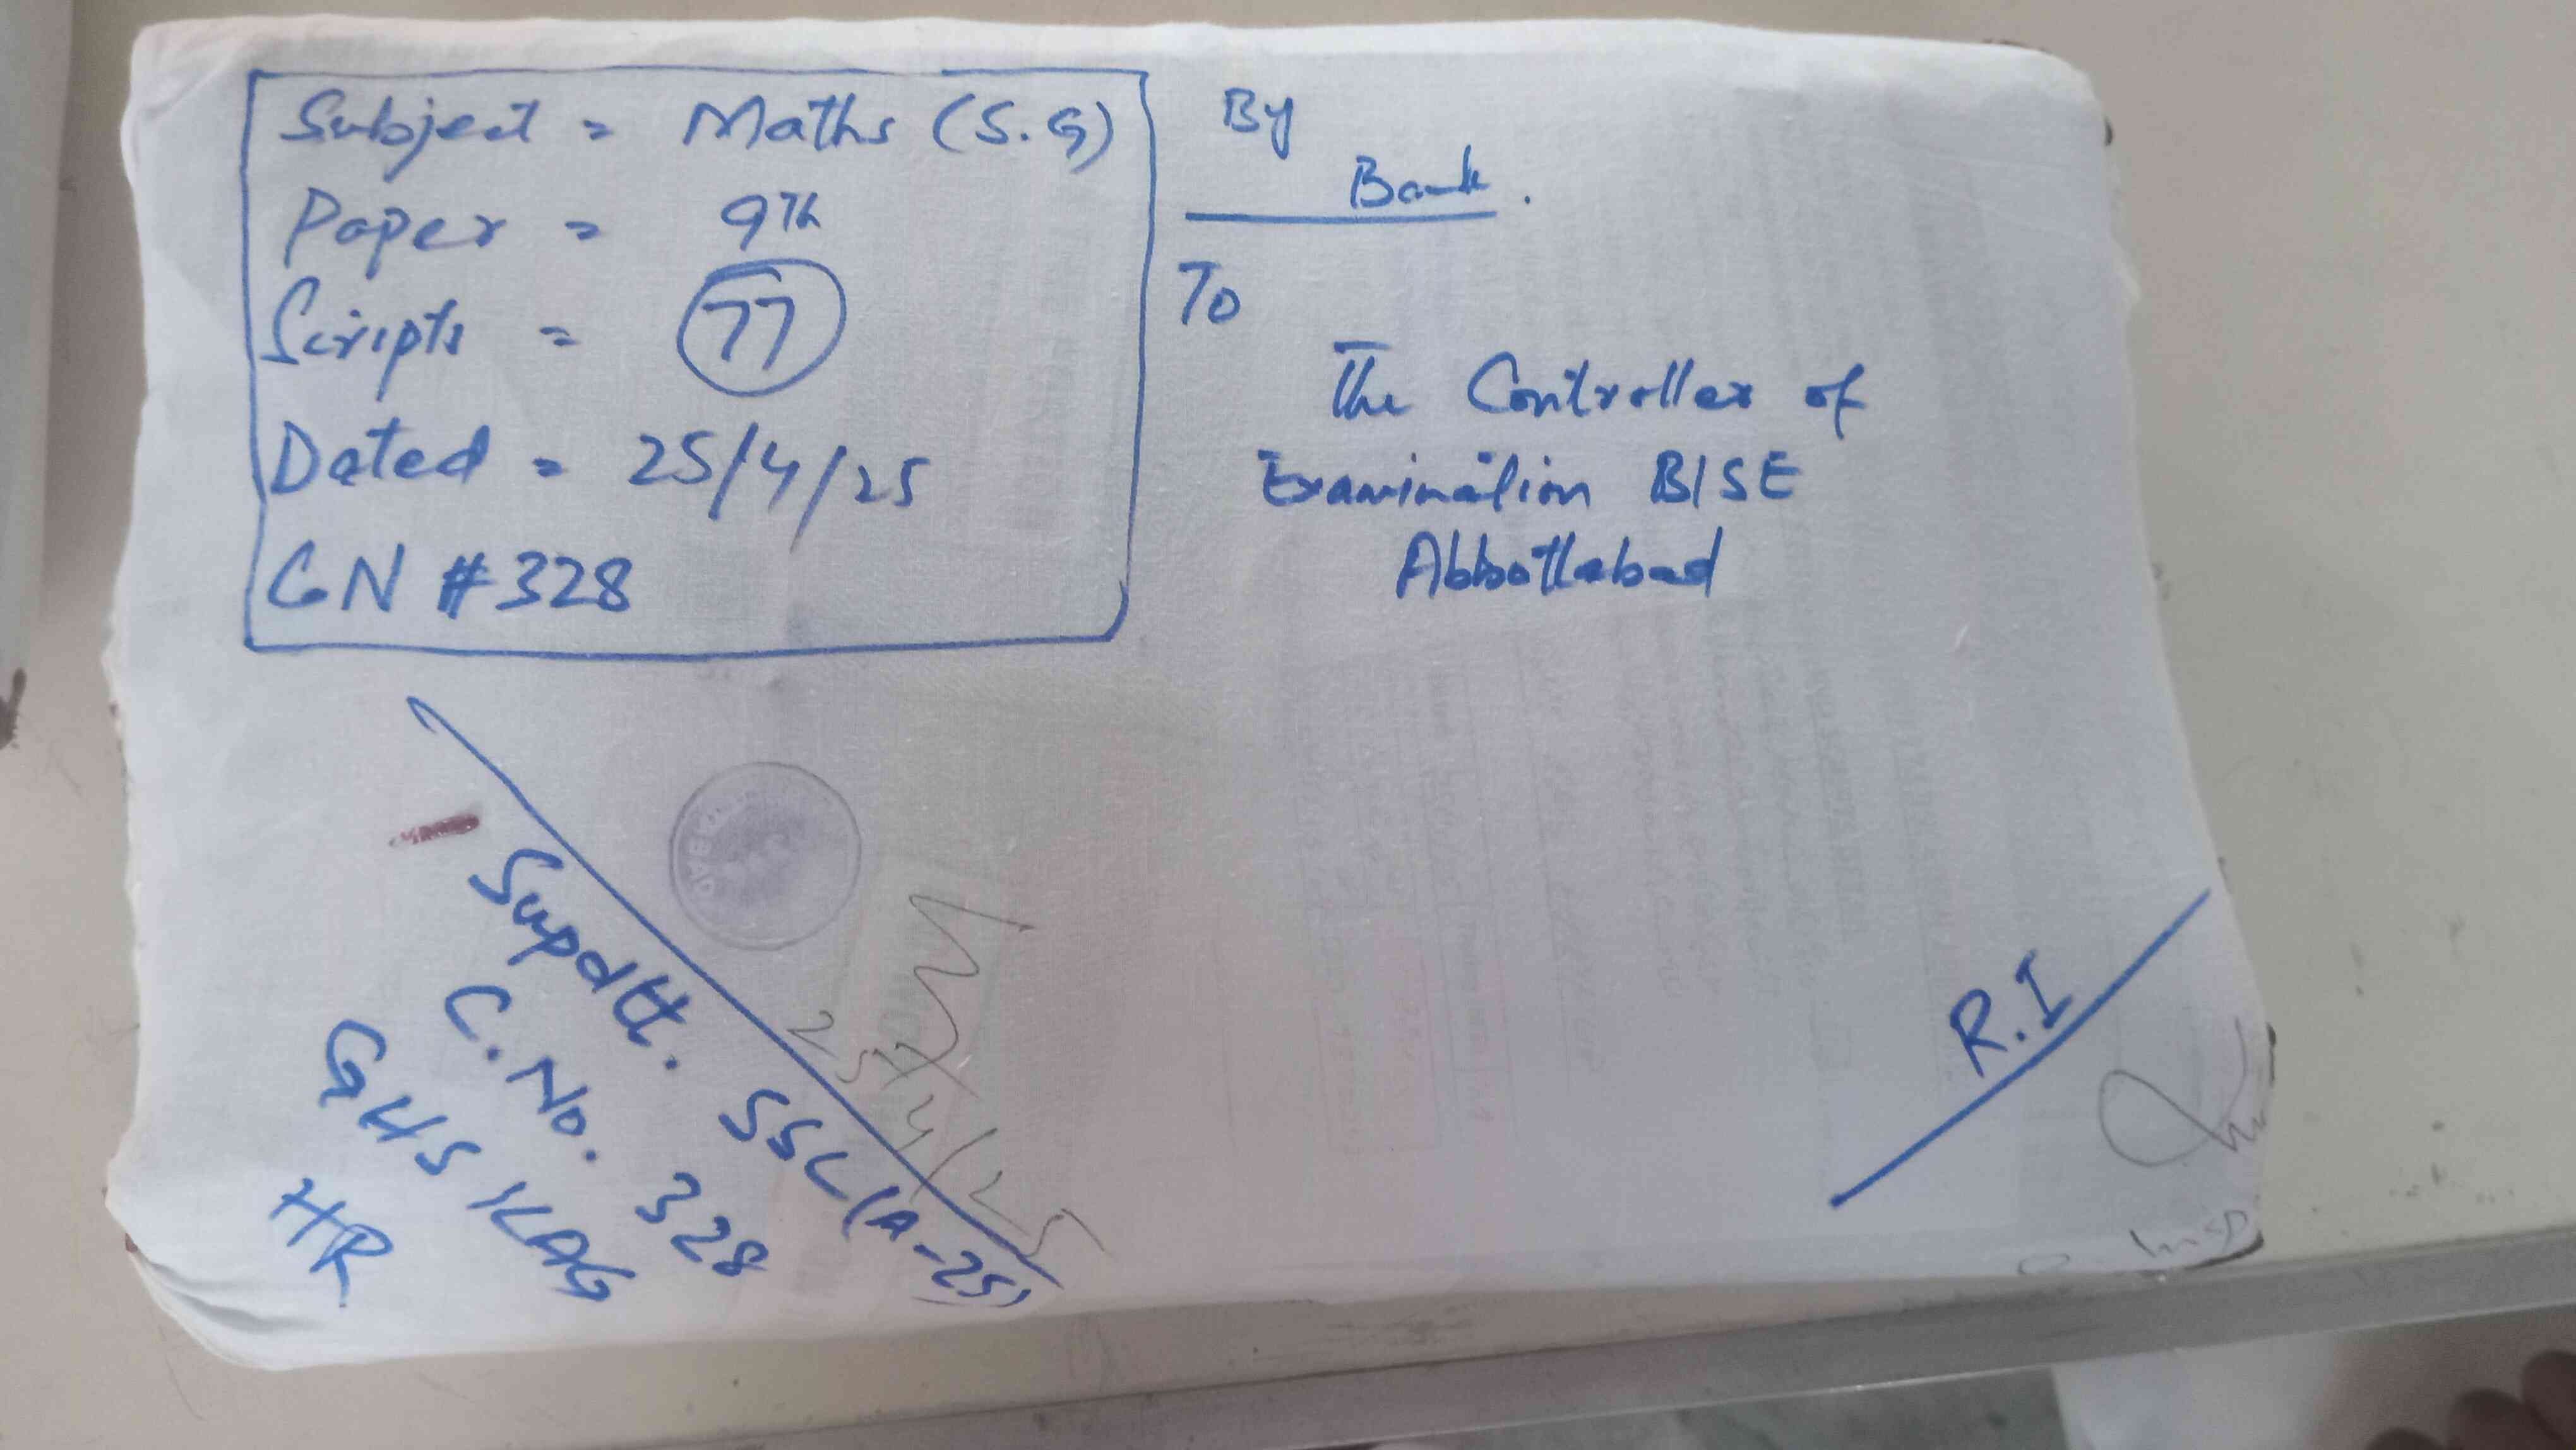 Subject = Maths (S.G)
Paper = 9th
Scripts = 77
Dated = 25/4/25
CN #328
By
Bank.
To
The Controller of
Examination BISE
Abbottabad
Supdtt. SSC (A-25)
C. No. 328
GHS KAG
HR
25/4/25
R.I